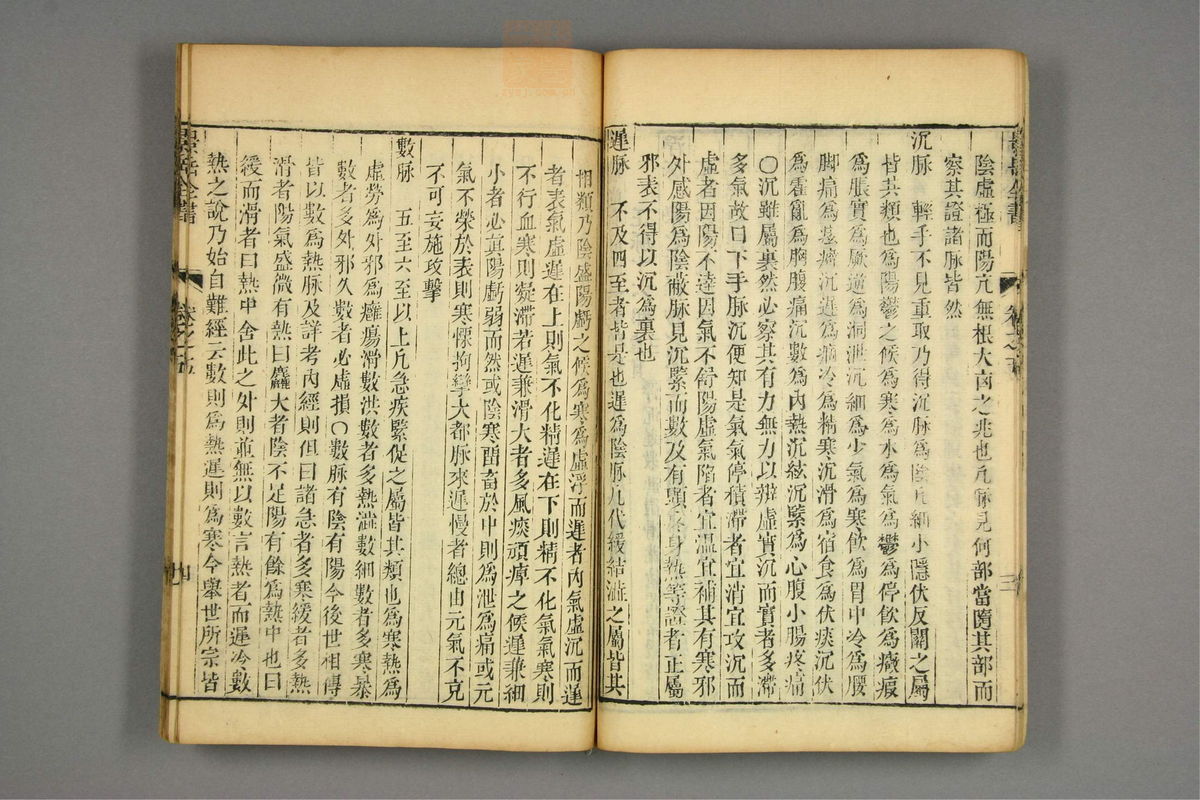 陰虛極而陽亢無根大凶之兆也凡脉見何部當隨其部而
察其證諸脉皆然
沉脉 輕手不見重取乃得沉脉爲陰凡細小隱伏反關之屬
皆其類也爲陽鬱之候爲寒爲水爲氣爲鬱爲停飲爲癥瘕
爲脹實爲厥逆爲洞泄沉細爲少氣爲寒飲爲胃中冷爲腰
脚痛爲痃癖沉遲爲痼冷爲精寒沉滑爲宿食爲伏痰沉伏
爲霍亂爲胸腹痛沉數爲內熱沉弦沉緊爲心腹小腸疼痛
〇沉雖屬裏然必察其有力無力以辯虛實沉而實者多滯
多氣故曰下手脉沉便知是氣氣停積滯者宜消宜攻沉而
虛者因陽不達因氣不舒陽虛氣陷者宜溫宜補其有寒邪
外感陽爲陰蔽脉見沉緊而數及有頭疼身熱等證者正屬
邪表不得以沉爲裏也
遲脉 不及四至者皆是也遲爲陰脉凡代緩結澁之屬皆其
相類乃陰盛陽虧之候爲寒爲虛浮而遲者內氣虛沉而遲
者表氣虛遲在上則氣不化精遲在下則精不化氣氣寒則
不行血寒則凝滯若遲兼滑大者多風痰頑痺之候遲兼細
小者必眞陽虧弱而然或陰寒留畜於中則爲泄爲痛或元
氣不榮於表則寒慄拘攣大都脉來遲慢者總由元氣不充
不可妄施攻擊
數脉 五至六至以上凡急疾緊促之屬皆其類也爲寒熱爲
虛勞爲外邪爲癰瘍滑數洪數者多熱澁數細數者多寒暴
數者多外邪久數者必虛損〇數脉有陰有陽今後世相傳
皆以數爲熱脉及詳考內經則但曰諸急者多寒緩者多熱
滑者陽氣盛微有熱曰麤大者陰不足陽有餘爲熱中也曰
緩而滑者曰熱中舍此之外則並無以數言熱者而遲冷數
熱之說乃始自難經云數則爲熱遲則爲寒今舉世所宗皆
景岳全書
卷之五
四